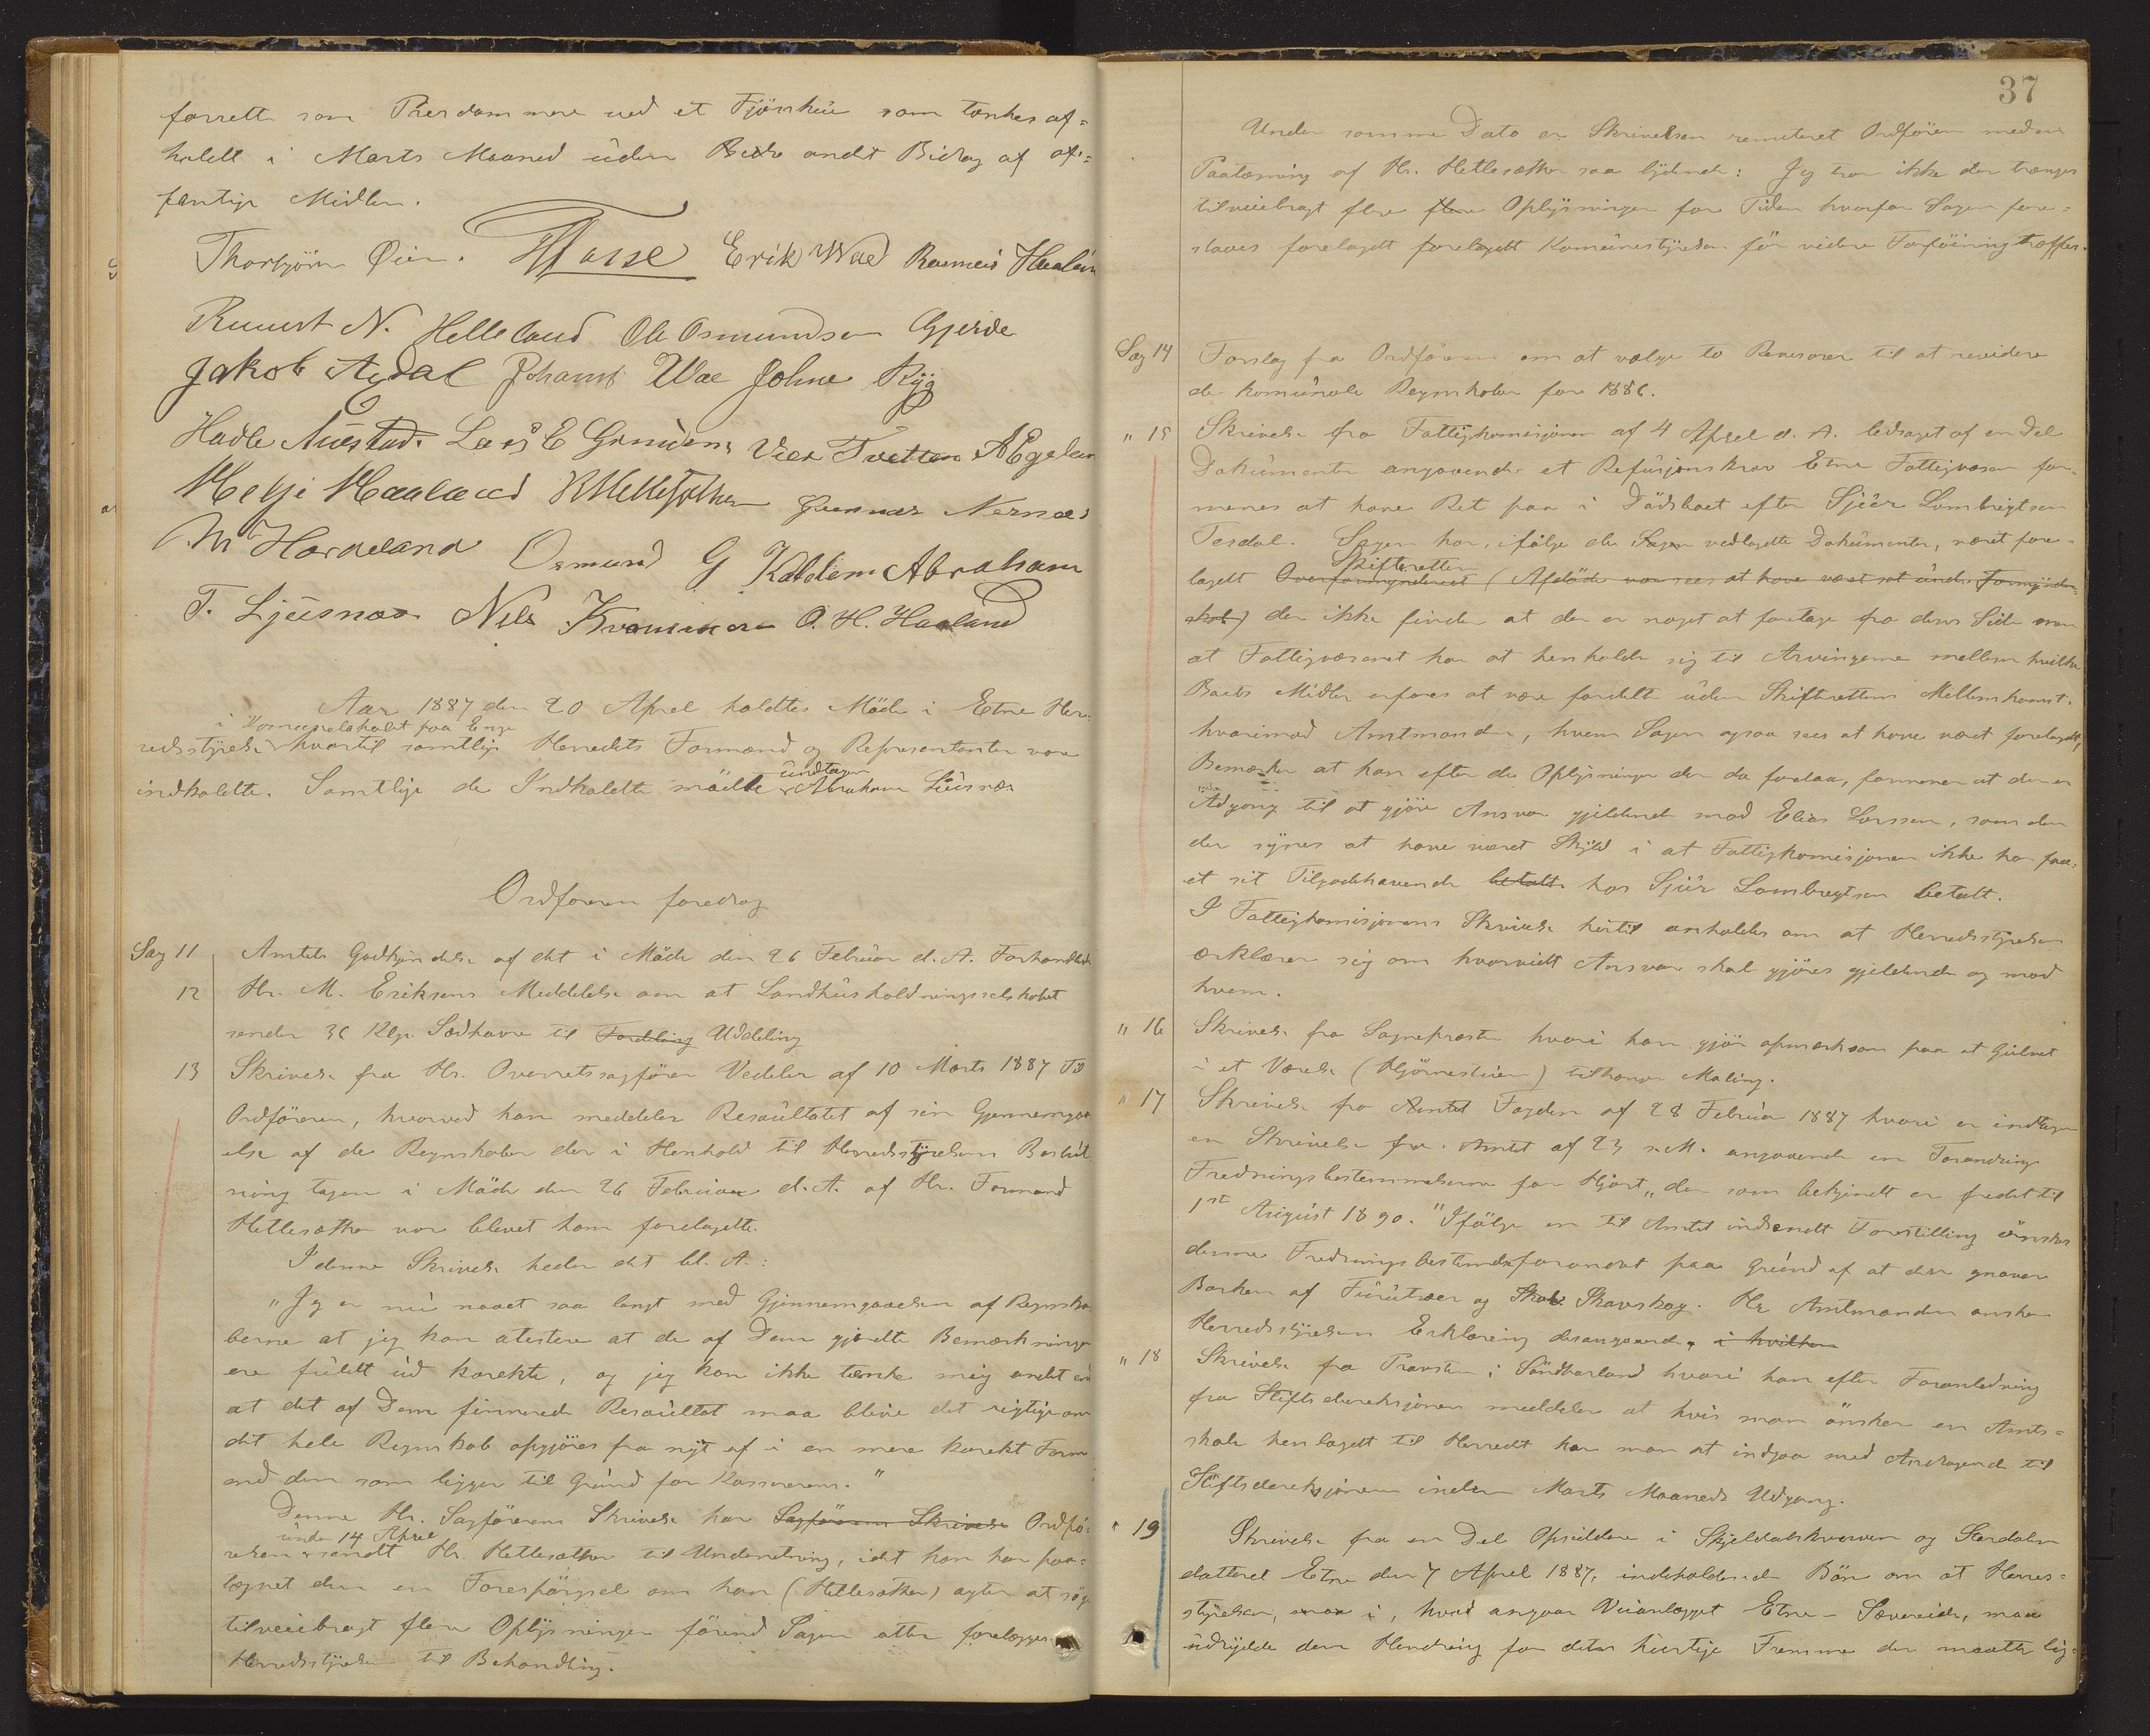 forrette som Prisdommere ved et Fjösskue som tænkes af=
holdt i Marts Maaned uden andet Bidrag af of=
fentlige Midler.
Thorbjörn Øien. Erik Wae Rasmus Haaland
Knut N. Helleland Ole Osmundsen Gjerde
Jakob Agdal Johannes Wae Johne Ryg
Hadle Austad. Lars E Grindem Vier Tvetten A Egeland
Helje Haaland K Hettesæther Gunnar Nernæs
M Hardeland Osmund G Kaldem Abraham
T. Ljusnæs Nels Kvamme O. H. Haaland
Aar 1887 den 20 April holdtes Möde i Etne Her=
i Kommunelokalet paa Enge
redsstyrelse hvortil samtlige Herredets Formænd og Representanter vare
undtagen
indkaldte. Samtlige de Indkaldte mödte Abraham Liusnæs
Ordföreren foredrog
Sag 11 Amtets Godkjendelse af det i Möde den 26 Februar d. A. Forhandlede
12 Hr. M. Eriksens Meddelelse om at Landhusholdningsselskabet
sender 36 Klgr. Sædhavre til Fordeling Uddeling
13 Skrivelse fra Hr. Overretssagförer Vedeler af 10 Marts 1887 Til
Ordföreren, hvorved han meddeler Resaultatet af sin Gjennemgaa
else af de Regnskaber der i Henhold til Herredsstyrelsens Beslut
ning tagen i Möde den 26 Februar d. A. af Hr. Formand
Hettesæther var blevet ham forelagte.
I denne Skrivelse heder det bl. A.:
"Jeg er nu naaet saa langt med Gjennemgaaelsen af Regnska
berne at jeg kan atestere at de af Dem gjordte Bemærkninger
ere fuldt ud korekte, og jeg kan ikke tænke mig andet end
at det af Dem finnende Resaultat maa blive det rigtige om
det hele Regnskab opgjöres fra nyt af i en mere korekt Form
end den som ligger til Grund for Kassererens."
Denne Hr. Sagförerens Skrivelse har Sagförerens Skrivelse Ordfö=
under 14 April
reren sendt Hr. Hettesæther til Underretning, idet han har paa=
tegnet den en Forespörgsel om han (Hettesæther) agter at söge
tilveiebragt flere Oplysninger förend Sagen atter forelægges
Herredsstyrelsen til Behandling.
37
Under samme Dato er Skrivelsen remiteret Ordföreren med en
Paategning af Hr. Hettesæther saa lydende: Jeg tror ikke der trænges
tilveiebragt flere flere Oplysninger for Tiden hvorfor Sagen fore=
slaaes forelagdt forelagdt Komunestyrelsen för videre Forföining træffes.
Sag 14 Forslag fra Ordföreren om at vælge to Revisorer til at revidere
de komunale Regnskaber for 1886.
" 15 Skrivelse fra Fattigkomisjonen af 4 April d. A. ledsaget af en Del
Dokumenter angaaende et Refusjonskrav Etne Fattigvæsen for=
menes at have Ret paa i Dödsboet efter Sjur Lambregtsen
Tesdal. Sagen har, ifölge de Sagen vedlagte Dokumenter, været fore=
Skifteretten
lagdt Overformynderiet (Afdöde var sees at have været sat under Formynder=
skab) der ikke finder at der er noget at foretage fra dens Side men
at Fattigvæsenet har at henholde sig til Arvingerne mellem hvilke
Boets Midler erfares at være fordelt uden Skifterettens Mellemkomst.
hvorimod Amtmanden, hvem Sagen ogsaa sees at have været forelagdt,
Bemærker at han efter de Oplysninger der da forelaa, formener at der er
Adgang til at gjöre Ansvar gjeldende mod Elias Larssen, som den
der synes at have været Skyld i at Fattigkomisjonen ikke har faa=
et sit Tilgodehavende betalt hos Sjur Lambregtsen betalt.
I Fattigkomisjonens Skrivelse hertil anholdes om at Herredsstyrelsen
erklærer sig om hvorvidt Ansvar skal gjöres gjeldende og mod
hvem.
" 16 Skrivelse fra Sognepresten hvori han gjör opmærksom paa at Gulvet
i et Værelse (Hjörnestuen) tiltrænger Maling.
" 17 Skrivelse fra Amtet Fogden af 28 Februar 1887 hvori er indtagen
en Skrivelse fra Amtet af 23 s. M. angaaende en Forandring
Fredningsbestemmelserne for Hjort "der som bekjendt er fredet til
1st August 1890." Ifölge en til Amtet indsendt Forestilling önskes
denne Fredningsbestemmelse forandret paa Grund af at den gnaver
Barken af Furutræer og Skov. Skavskog. Hr Amtmanden ønsker
Herredsstyrelsens Erklæring desangaaende, i hvilken
" 18 Skrivelse fra Provsten i Söndhorland hvori han efter Foranledning
fra Stiftsdereksjonen meddeler at hvis man önsker en Amts=
skole henlagdt til Herredet har man at indgaa med Andragende til
Stiftsdereksjonen inden Marts Maaneds Udgang.
" 19 Skrivelse fra en Del Opsiddere i Skjeldalskverven og Stordalen
datteret Etne den 7 April 1887, indeholdende Bön om at Herres=
styrelsen, maa i, hvad angaar Veianlægget Etne - Sævereide, maa
udrydde den Hendring for dettes hurtige Fremme der maatte lig=